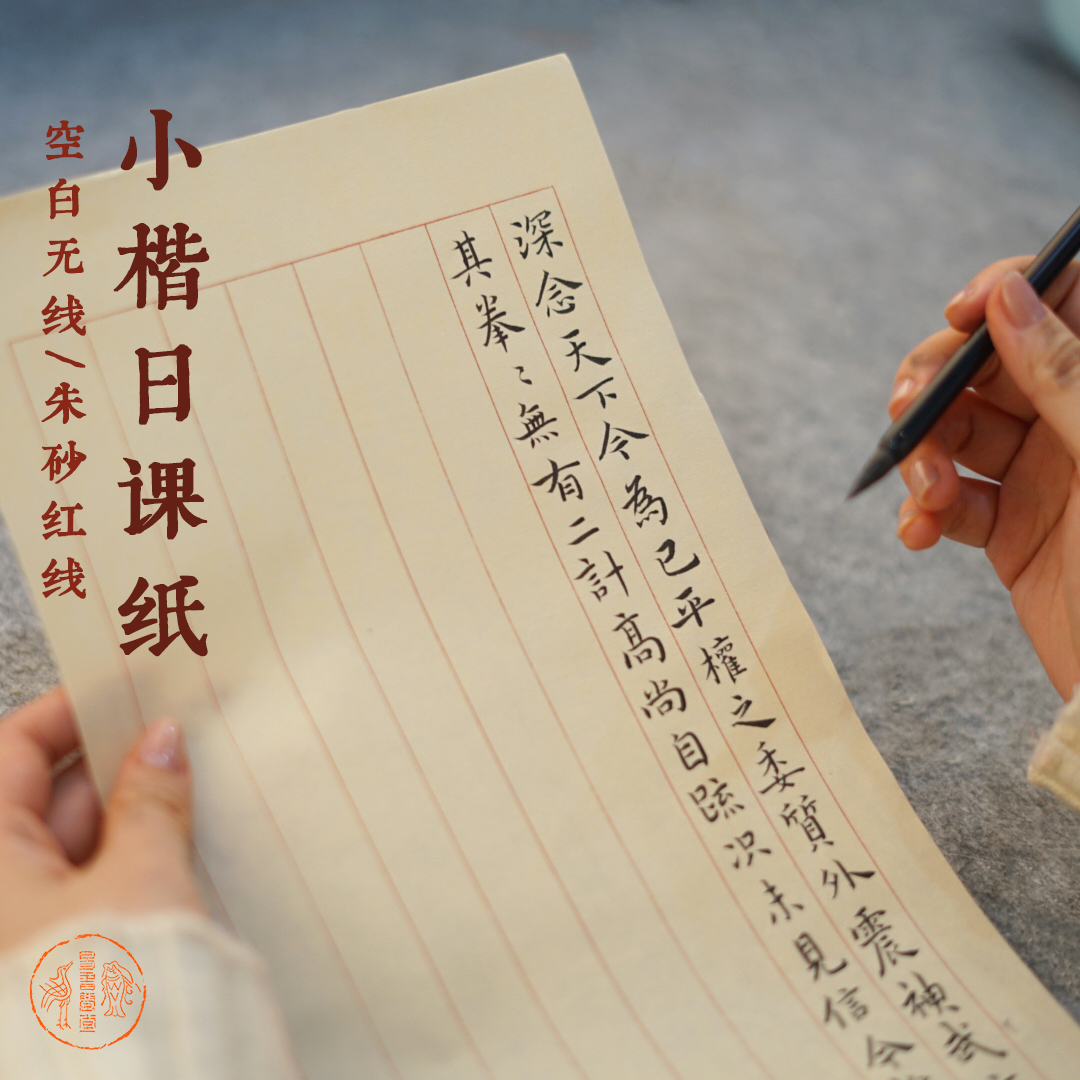 小楷日课纸
空白无线/朱砂红线
深念天下今為已平權之委質外震神武
其拳〻無有二計髙尚自踈况未見信今